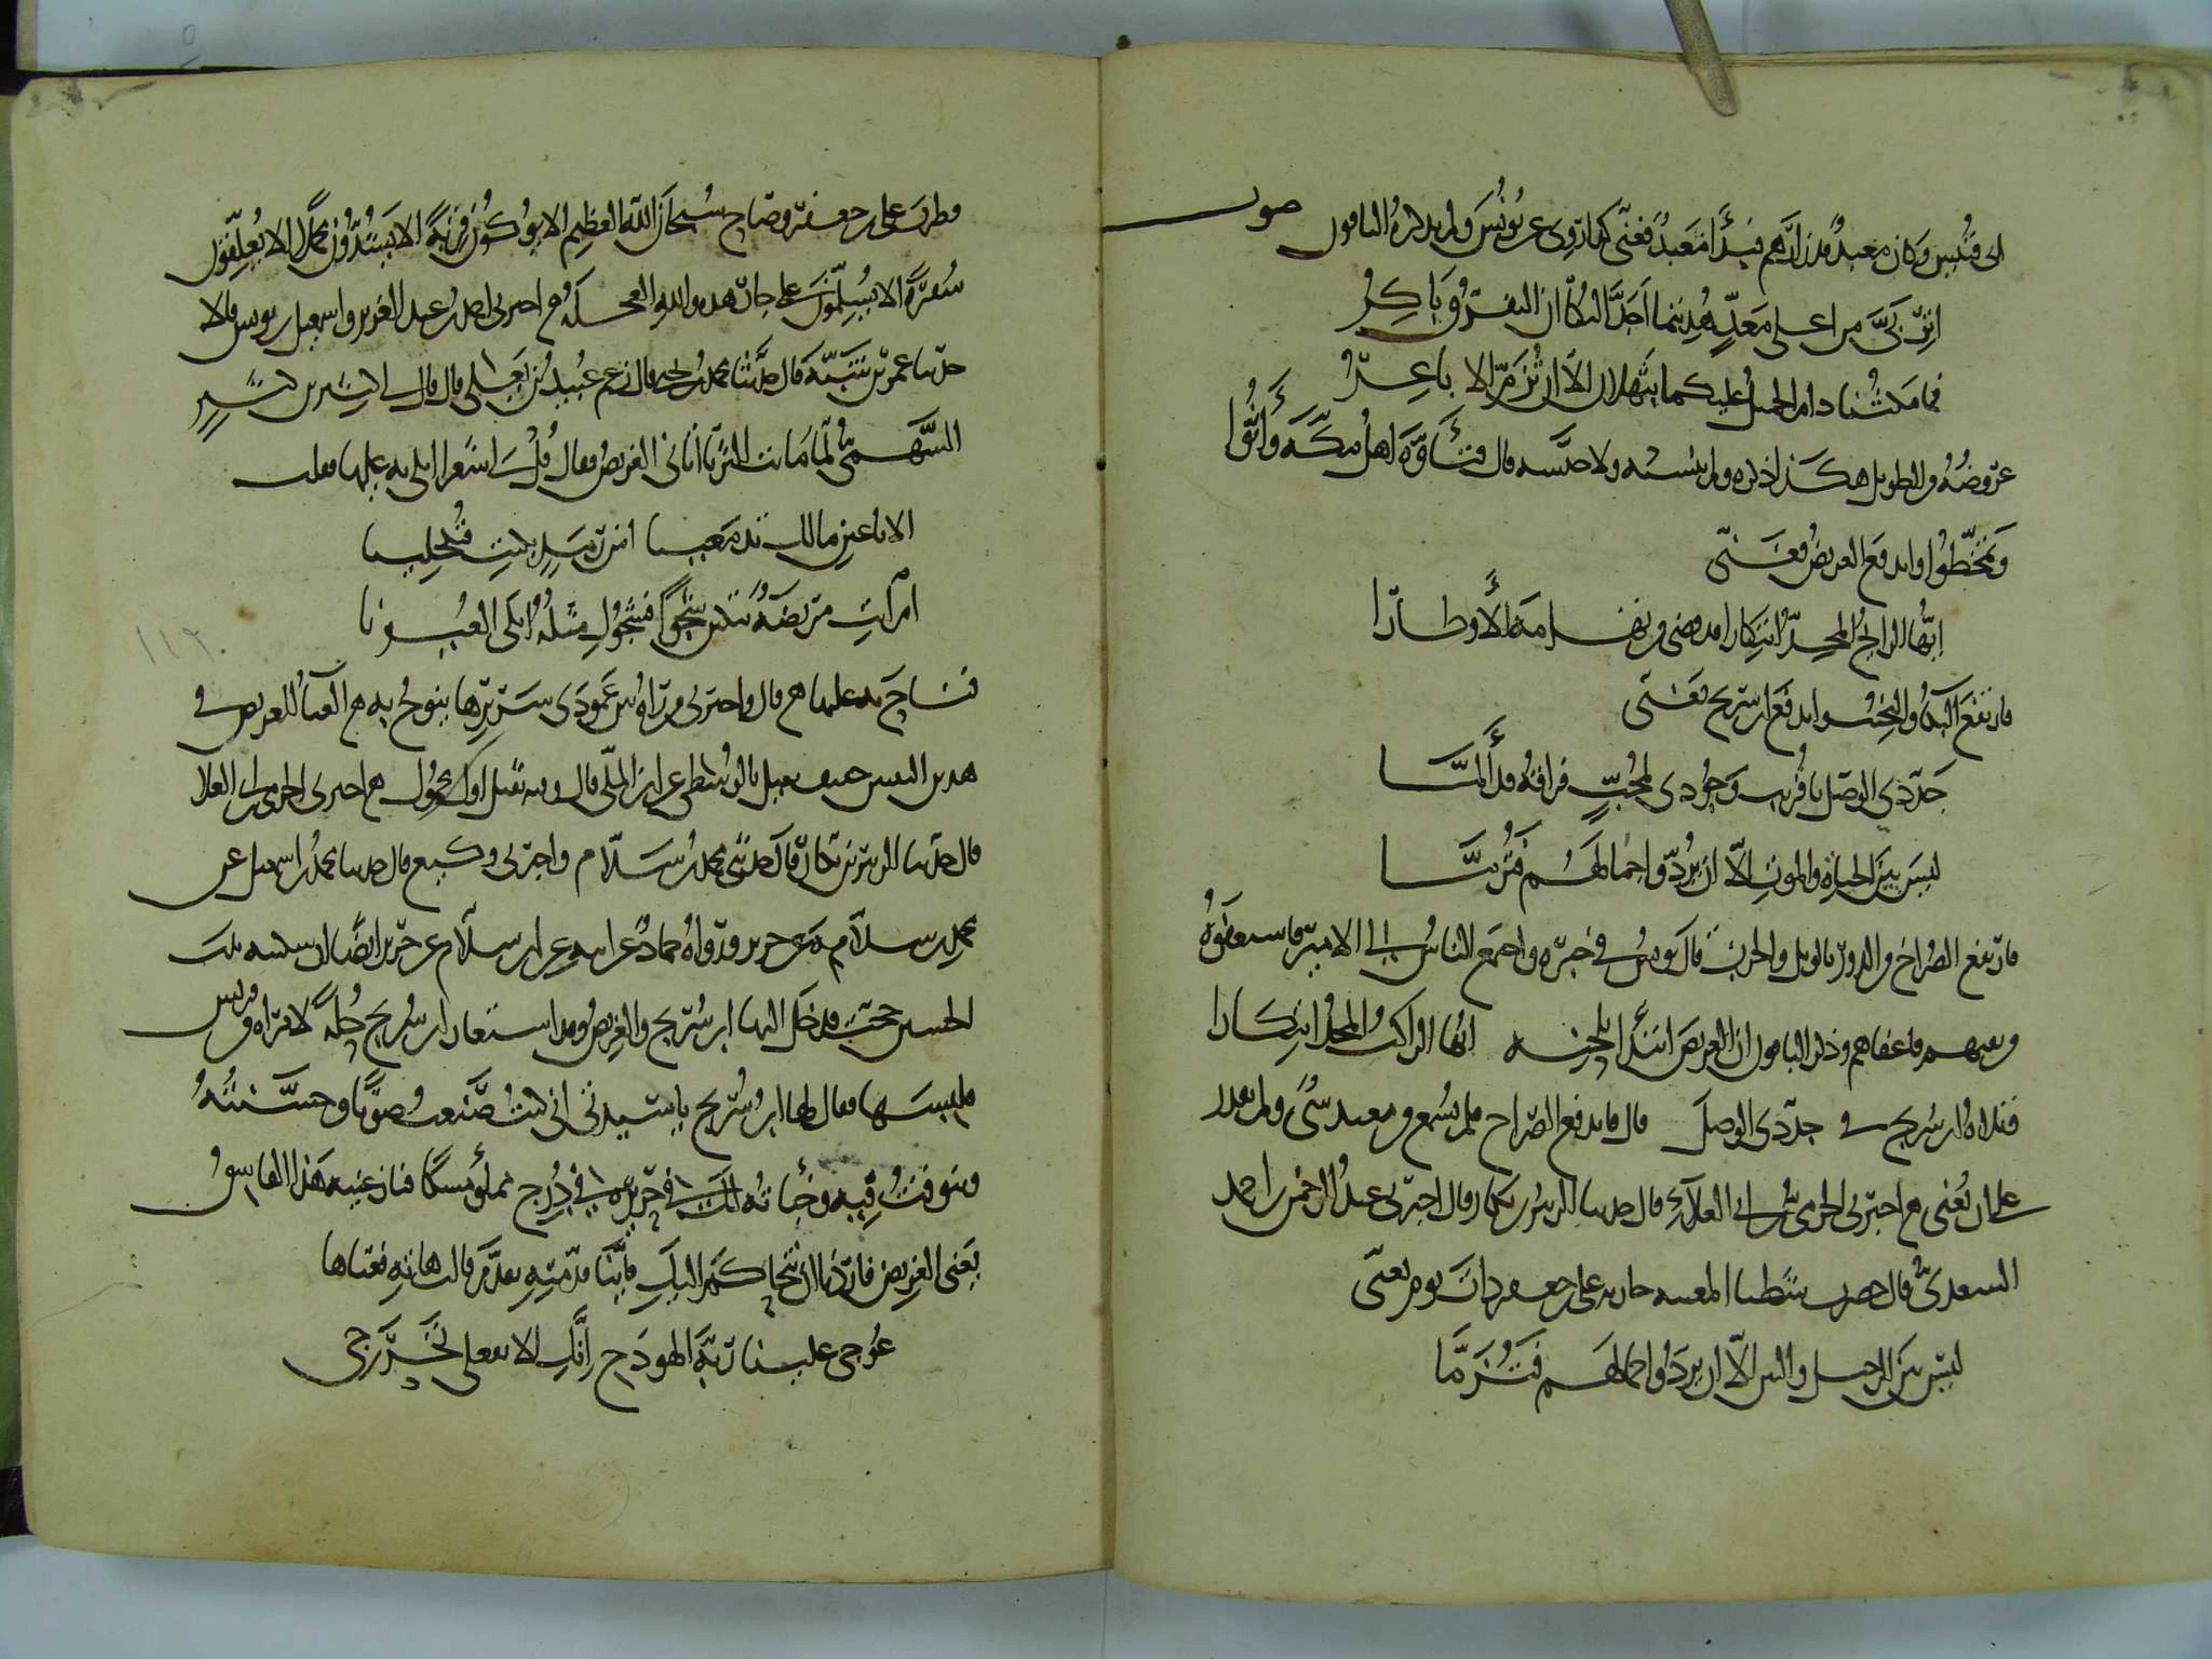 ابى قبيس وكان معبد قد زارهم فبدأ معبد فغنى كما روى عن يونس ولم يذكره الباقون صوت
اتربى من اعلى معد هديتما اجدا البكا ان التفرق باكر
فما مكثنا دام الجميل عليكما بثهلان الا ان تزم الا باعر
عروضه من الطويل هكذا ذكره ولم ينسبه ولا جنسه قال فتأوه اهل مكة وأنوا
وتمخطوا واندفع الغريض فغنى
ايها الرائح المجد ابتكارا قد قضى من تهامة الأوطارا
فارتفع البكا والنحيب واندفع ابن سريج فغنى
جددى الوصل يا قريب وجودى لمحب فراقه قد ألما
ليس بين الحياة والموت الا ان يردوا جمالهم فتزما
فارتفع الصراخ من الدور بالويل والحرب قال يونس في خبره واجتمع الناس الى الامير فاستعفوه
من نفيهم فاعفاهم وذكر الباقون ان الغريض ابتدأ بلحنه ايها الراكب المجد ابتكارا
فتلاه ابن سريج في جددى الوصل قال فاندفع الصراخ فلم يسمع من معبد شى ولم يقدر
على ان يغنى هـ اخبرنى الحرمى بن ابى العلاء قال حدثنا الزبير بن بكار قال اخبرنى عبد الرحمن بن احمد
السعدى قال حضرت شطبا المغنية جارية على بن جعفر ذات يوم تغنى
ليس بين الرحيل والبين الا ان يردوا جمالهم فتزما
فطرب على بن جعفر وصاح سبحان الله العظيم الا يوكون قربة الا يشدون محملا الا يعلقون
سفرة الا يسلمون على جار هذه والله العجلة هـ اخبرنى احمد بن عبد العزيز واسمعيل بن يونس قالا
حدثنا عمر بن شبة قال حدثنا محمد بن يحيى قال زعم عبيد بن يعلى قال قال لى كثير بن كثير
السهمى لما ماتت الثريا أتانى الغريض فقال قل لى شعرا ابكى به عليها فقلت
الا يا عين مالك تدمعينا امن رمد بكيت فتكحلينا
ام آنت مريضة تبكين شجوا فشجوك مثله ابكى العيونا
فناح به عليها هـ قال واخبرنى من رآه بين عمودى سريرها ينوح به هـ الغناء للغريض في
هذين البيتين خفيف ثقيل بالوسطى عن ابن المكى قال وفيه ثقيل اول مجهول هـ اخبرنى الحرمى بن ابى العلا
قال حدثنا الزبير بن بكار قال حدثنى محمد بن سلام واخبرنى وكيع قال حدثنا محمد بن اسمعيل عن
محمد بن سلام عن جرير ورواه حماد عن ابيه عن ابن سلام عن جرير ايضا ان سكينة بنت
الحسين حجت فدخل اليها ابن سريج والغريض وقد استعار ابن سريج حلة لامرأة من قريش
فلبسها فقال لها ابن سريج يا سيدتى انى كنت صنعت صوتا وحسنته
وتنوقت فيه وخبأته لك في حريرة في درج مملو مسكا فنازعنيه هذا الفاسق
يعنى الغريض فاردنا ان نتحاكم اليك فأينا قدمتيه تقدم قالت هاته فغناها
عوجى علينا ربة الهودج انك الا تفعلى تحرجى